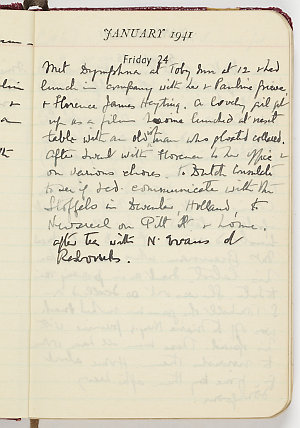 JANUARY 1941
Friday 24
Met Dymphna at Toby Inn at 12 & had
lunch in company with her & Pauline
& Florence James Heyting. A lovely girl got
up as a film lunched at next
table with an old man who
After went with Florence to her office &
on various chores. To Dutch Consulate
to see if I cd. communicate with the
Stoffels in Deventer, Holland, to
Newsreel on Pitt St & home.
After tea with N. Evans of